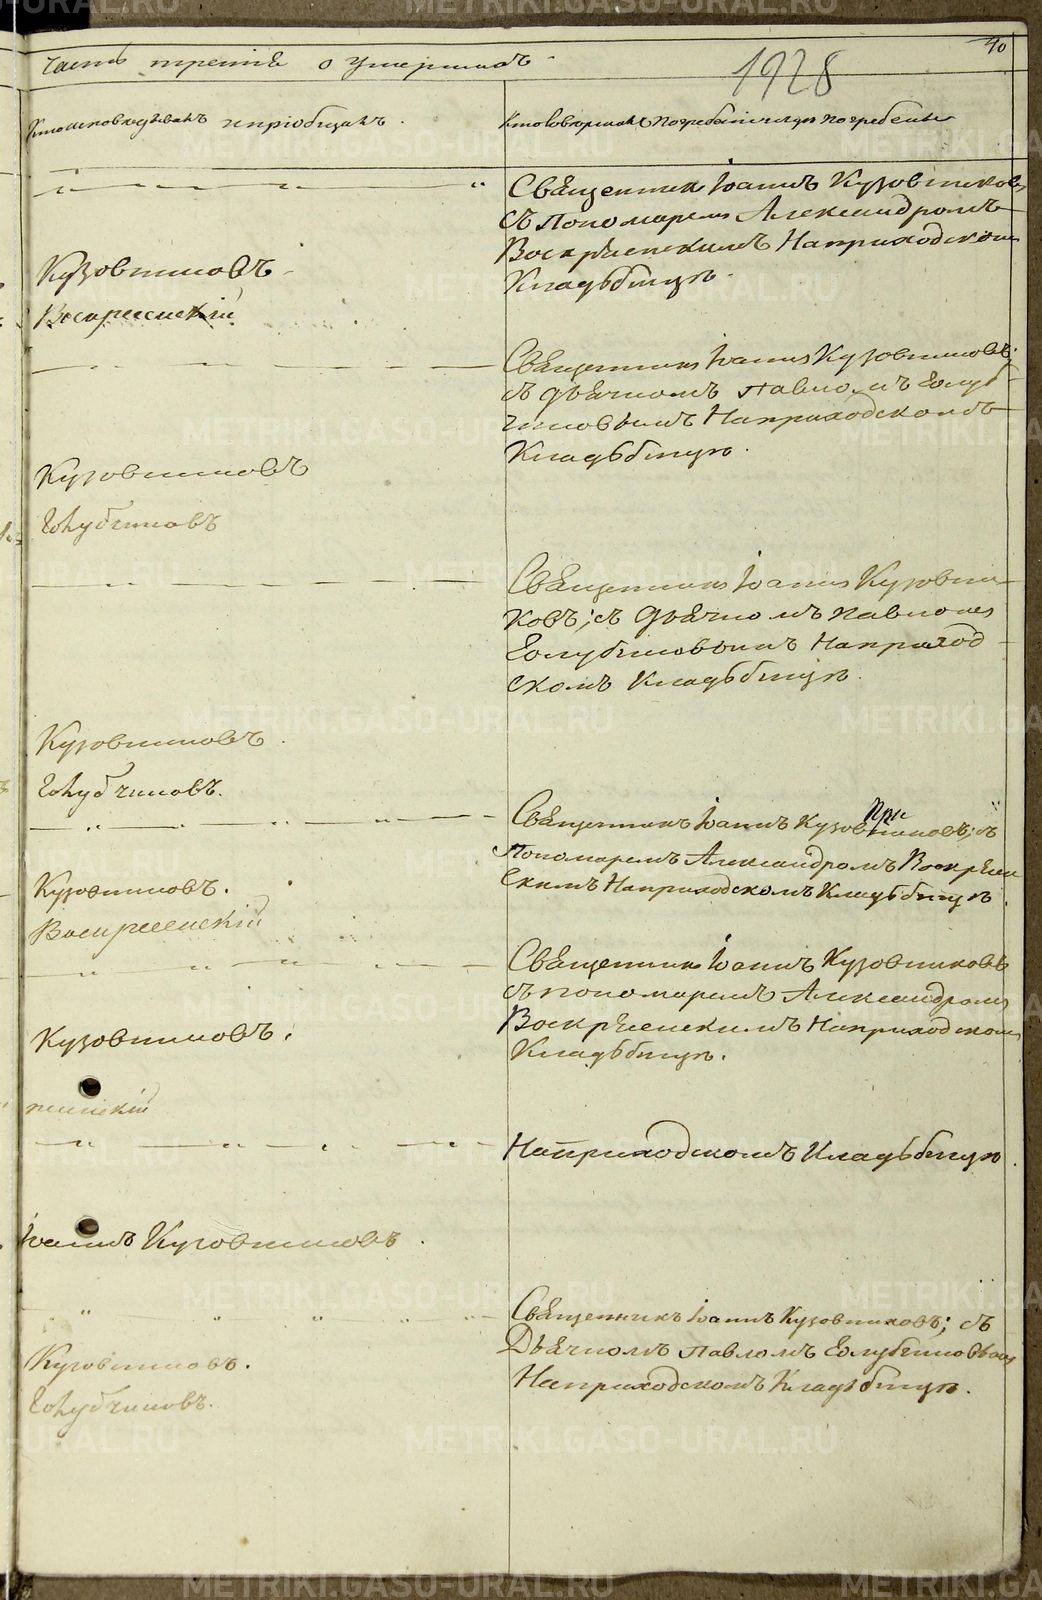 40
Часть третія о умершихъ
1928
Кто исповѣдывалъ и пріобщалъ.
Кто совершалъ погребеніе и гдѣ погребены
Священникъ Іоаннъ Кузовниковъ
съ пономаремъ Александромъ
Воскресенскимъ На приходскомъ
Кладьбищѣ.
Кузовниковъ
Воскресенскій
Священникъ Іоаннъ Кузовниковъ;
съ дьячкомъ Павломъ Голуб-
чиковымъ На приходскомъ
Кладьбищѣ.
Кузовниковъ
Голубчиковъ
Священникъ Іоаннъ Кузовни-
ковъ; съ Дьячкомъ Павломъ
Голубчиковымъ На приход-
скомъ Кладьбищѣ.
Кузовниковъ
Голубчиковъ.
Священникъ Іоаннъ Кузовниковъ; съ
Пономаремъ Александромъ Воскресен
скимъ На приходскомъ Кладьбищѣ.
Кузовниковъ.
Воскресенскій
Священникъ Іоаннъ Кузовниковъ
съ пономаремъ Александромъ
Воскресенскимъ На приходскомъ
Кладьбищѣ.
Кузовниковъ.
На приходскомъ Кладьбищѣ.
Іоаннъ Кузовниковъ.
Священникъ Іоаннъ Кузовниковъ; съ
Дьячкомъ Павломъ Голубчиковымъ
На приходскомъ Кладьбищѣ.
Кузовниковъ.
Голубчиковъ.
METRIKI.GASO-URAL.RU